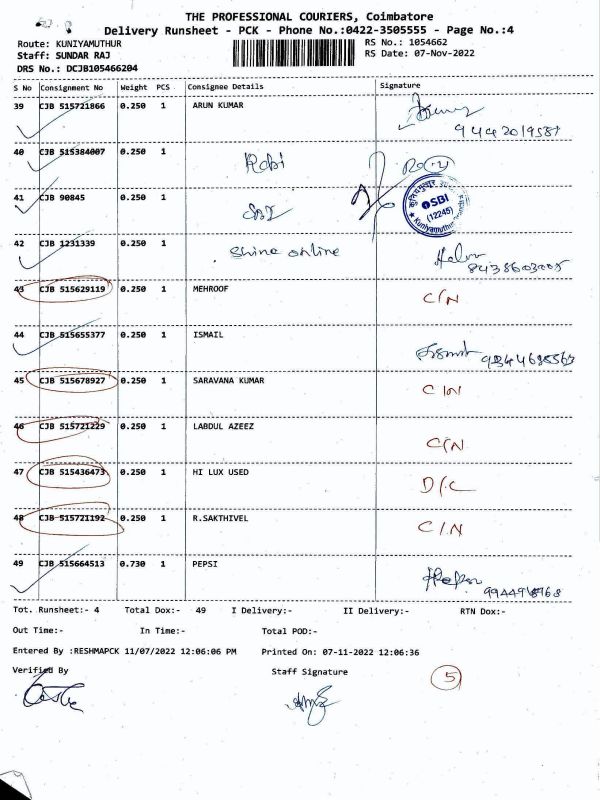 THE PROFESSIONAL COURIERS, Coimbatore
Delivery Runsheet - PCK - Phone No.:0422-3505555 - Page No.:4
Route: KUNIYAMUTHUR RS No.: 1054662
Staff: SUNDAR RAJ RS Date: 07-Nov-2022
DRS No.: DCJB105466204
S No Consignment No Weight PCS Consignee Details Signature
39 CJB 515721866 0.250 1 ARUN KUMAR
9442019587
40 CJB 515384007 0.250 1 Robi
41 CJB 90845 0.250 1 SBI
SBI
(12245)
Kuniyamuthur
42 CJB 1231339 0.250 1 Shine online
8438603005
43 CJB 515629119 0.250 1 MEHROOF C/N
44 CJB 515655377 0.250 1 ISMAIL
9344685563
45 CJB 515678927 0.250 1 SARAVANA KUMAR C/N
46 CJB 515721229 0.250 1 LABDUL AZEEZ C/N
47 CJB 515436473 0.250 1 HI LUX USED D/C
48 CJB 515721192 0.250 1 R.SAKTHIVEL C/N
49 CJB 515664513 0.730 1 PEPSI
Tot. Runsheet:- 4 Total Dox:- 49 I Delivery:- II Delivery:- RTN Dox:-
Out Time:- In Time:- Total POD:-
Entered By :RESHMAPCK 11/07/2022 12:06:06 PM Printed On: 07-11-2022 12:06:36
Verified By Staff Signature 5